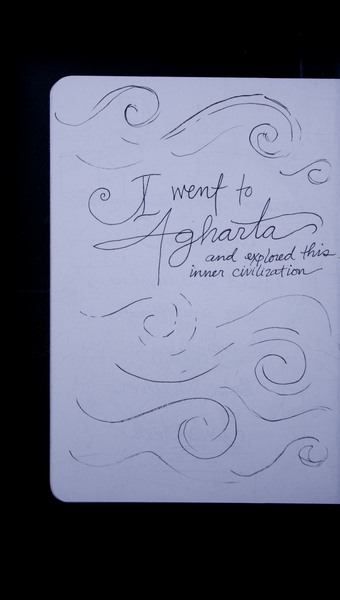 I went to
Agharta
and explored this
inner civilization